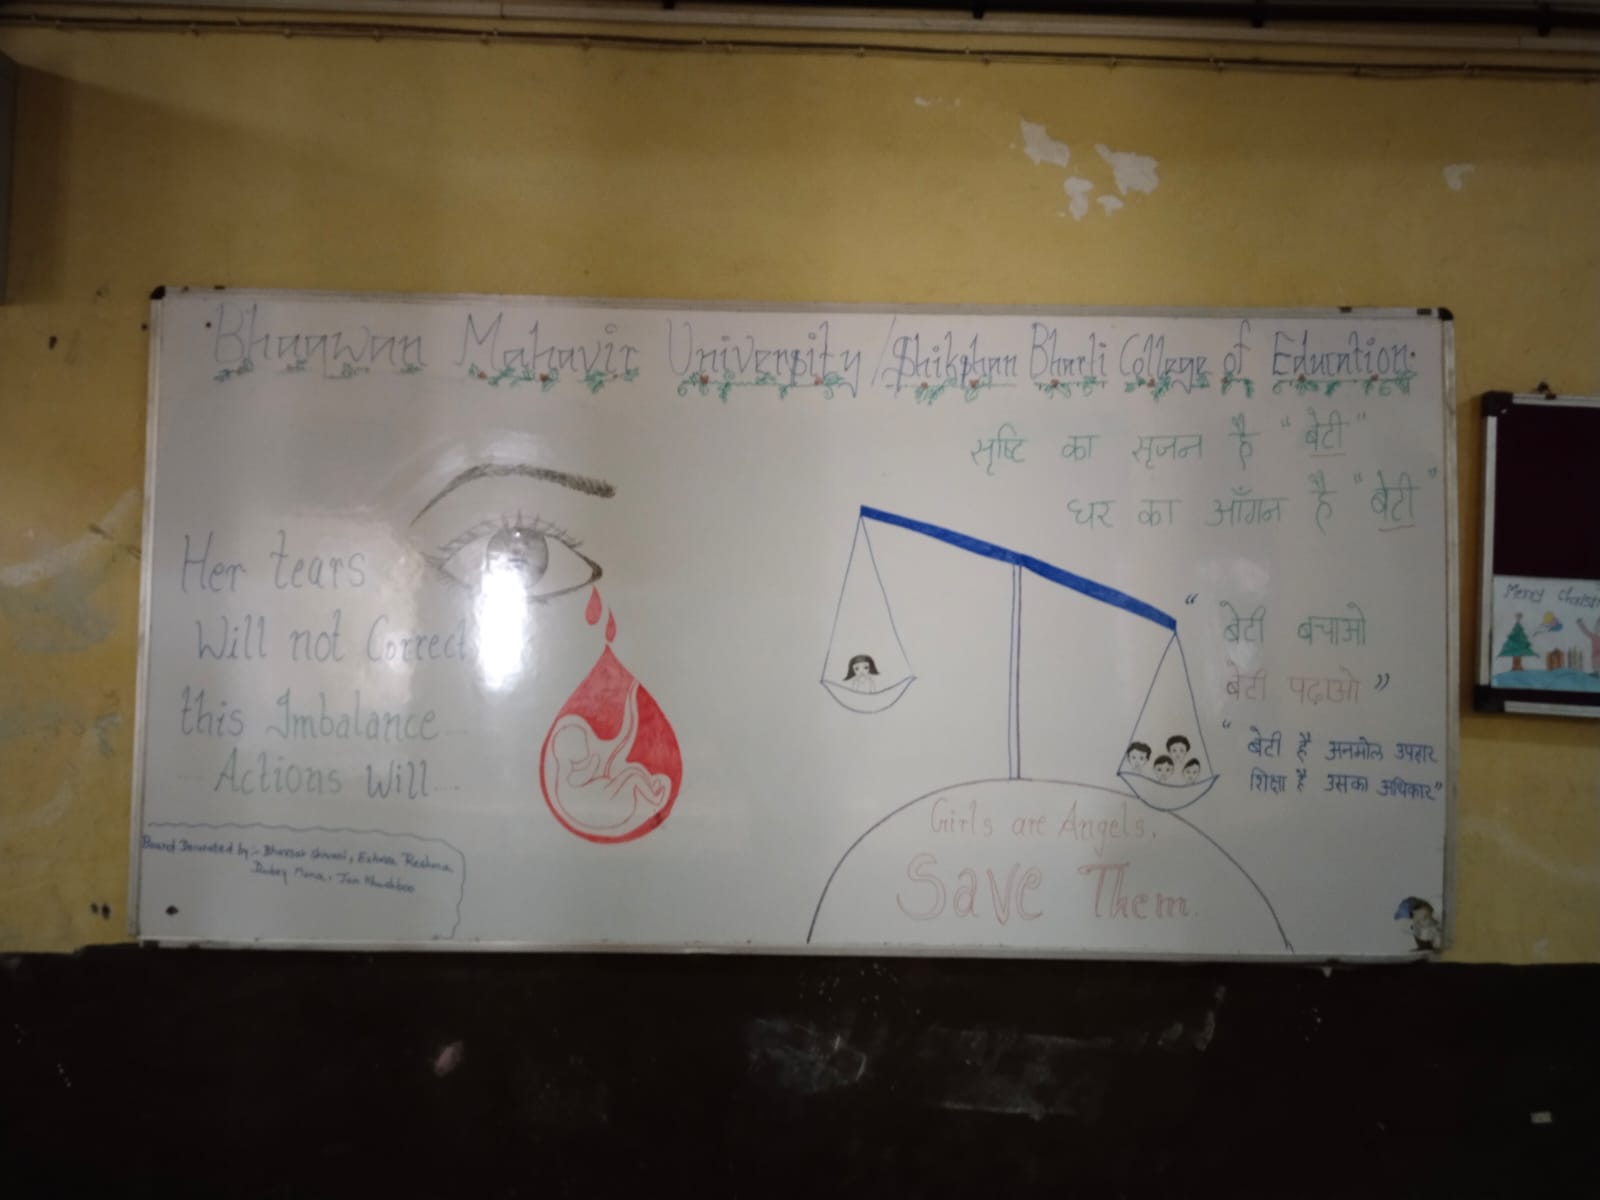 Bhagwan Mahavir University / Shikshan Bharti College of Education.
सृष्टि का सृजन है "बेटी"
घर का आँगन है "बेटी"
Her tears
Will not Correct
this Imbalance
Actions Will....
"बेटी बचाओ
बेटी पढ़ाओ"
"बेटी है अनमोल उपहार
शिक्षा है उसका अधिकार"
Girls are Angels,
Save Them.
Board Decorated by:- Shivani, Reshma
Dubey Mona, Khushboo
Merry